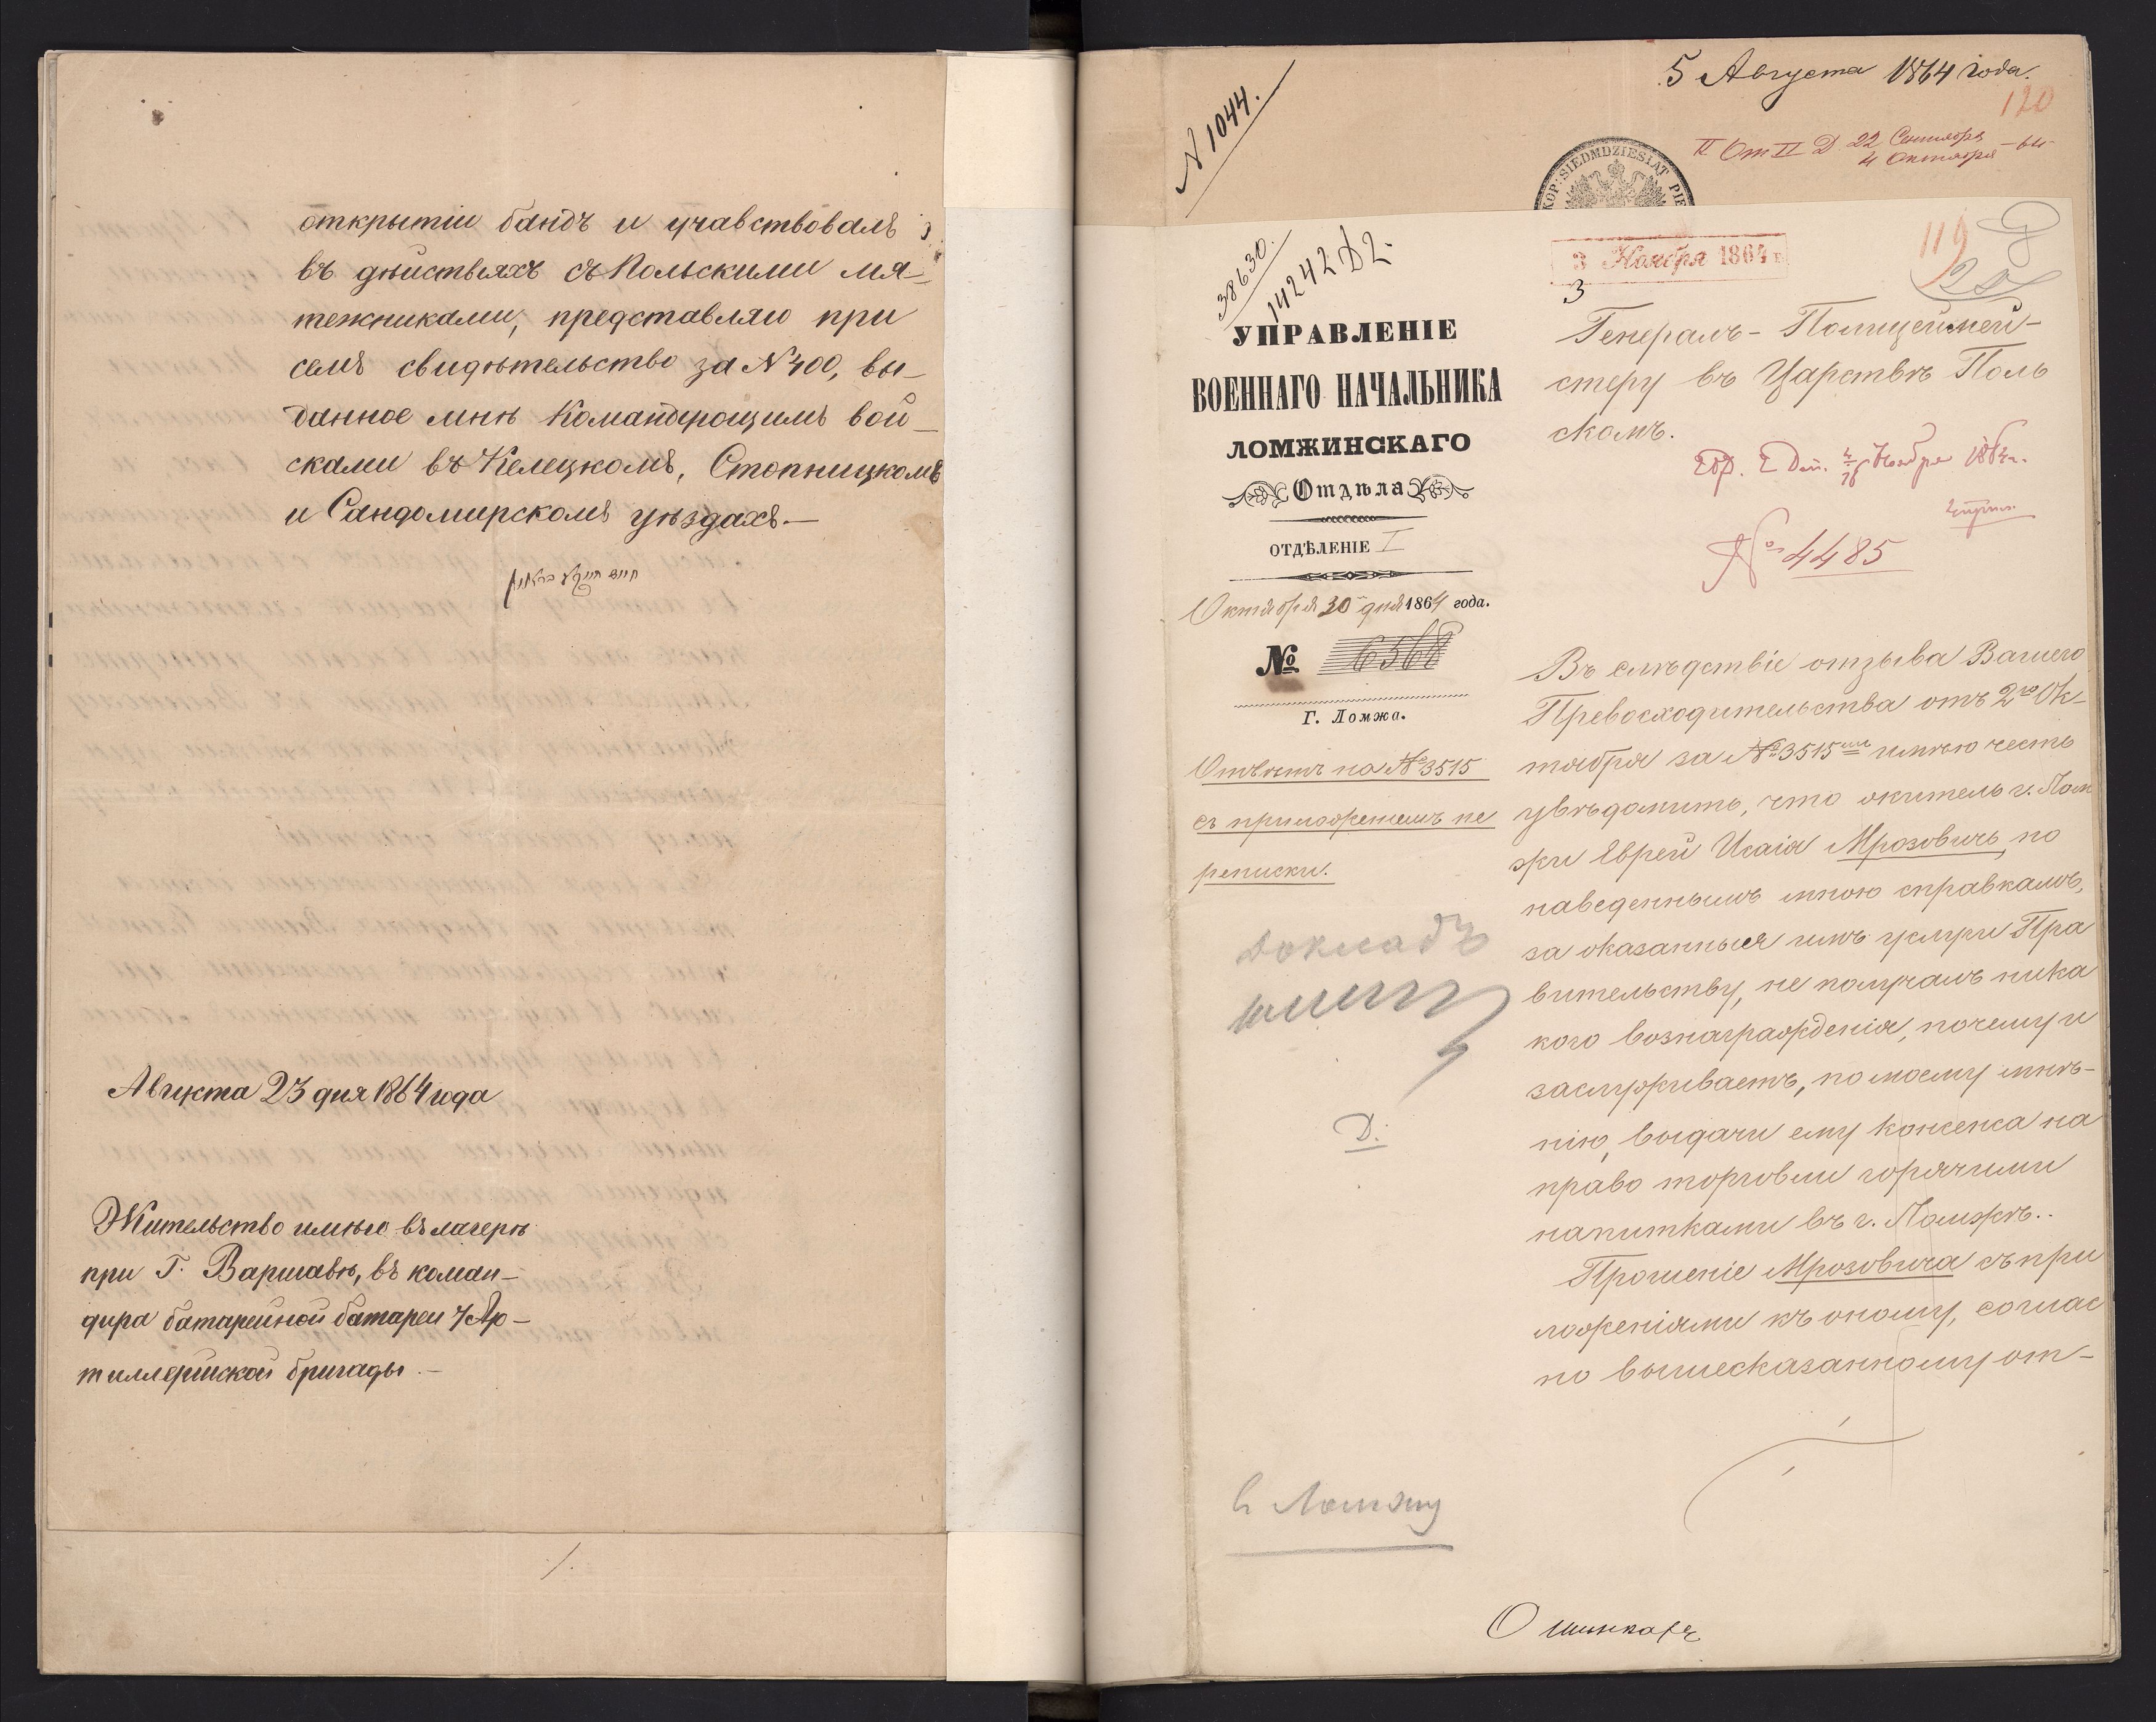 открытіи бандъ и учавствовалъ
въ дѣйствіяхъ съ Польскими мя-
тежниками, представляю при
семъ свидѣтельство за N 400, вы-
данное мнѣ Командующимъ вой-
сками въ Келецкомъ, Стопницкомъ
и Сандомирскомъ уѣздахъ.—
Августа 23 дня 1864 года
Жительство имѣю въ лагерѣ
при Г. Варшавѣ, въ коман-
дира батарейной батареи 7 Ар-
тиллерійской бригады.—
5 Августа 1864 года.
N 1044.
120
II От II Д 22 Сентября
4 Октября
KOP: SIEDMDZIESIĄT PIĘ
38630.
14242 Д2.
3 Ноября 1864 г.
119
3
УПРАВЛЕНІЕ
ВОЕННАГО НАЧАЛЬНИКА
ЛОМЖИНСКАГО
Отдѣла
ОТДѢЛЕНІЕ I
Октября 30 дня 1864 года.
№ 6568
Г. Ломжа.
Отвѣтъ на № 3515
съ приложеніемъ пе
реписки.
Докладъ
Д.
в Ломжу
Генералъ-Полицеймей-
стеру въ Царствѣ Поль
скомъ.
4/16 Ноября 1864 г.
№ 4485
Въ слѣдствіе отзыва Вашего
Превосходительства отъ 2го Ок-
тября за № 3515 имѣю честь
увѣдомить, что житель г. Лом
жи Еврей Исаія Мрозовичь, по
наведеннымъ мною справкамъ,
за оказанныя имъ услуги Пра
вительству, не получалъ ника
кого вознагражденія, почему и
заслуживаетъ, по моему мнѣ-
нію, выдачи ему консенса на
право торговли горячими
напитками въ г. Ломжѣ..
Прошеніе Мрозовича съ при
ложеніями къ оному, соглас
но вышесказанному от-
О шинкахъ